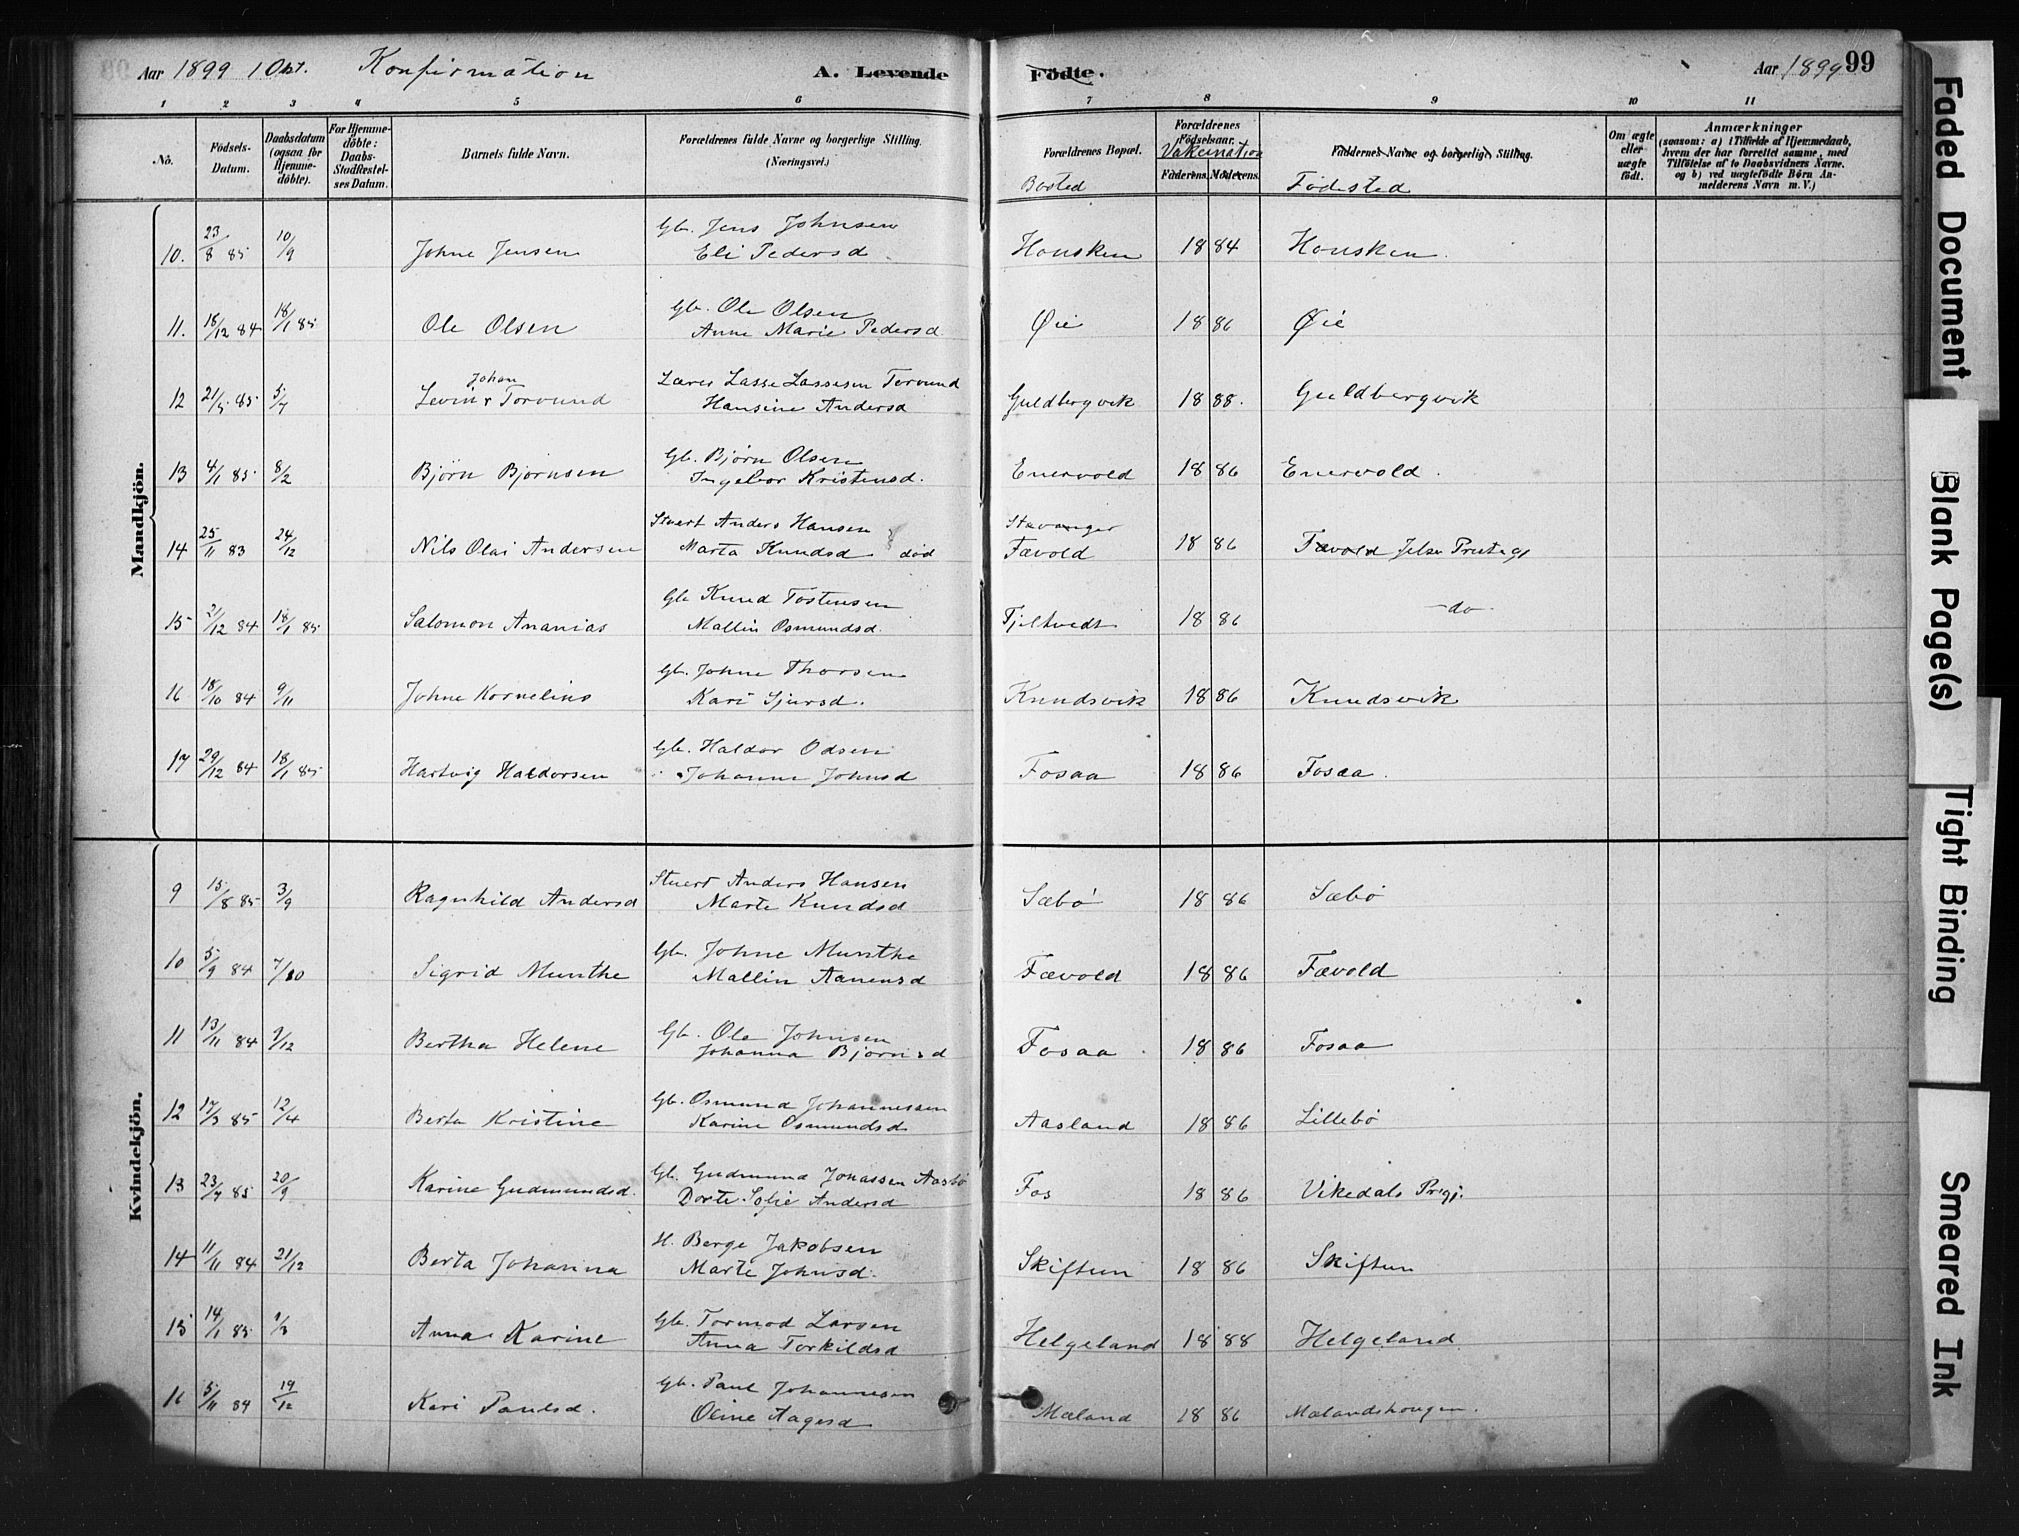 Aar 1899 1 Okt. Konfirmation A. Levende Födte. Aar 1899 99
1 2 3 4 5 6 7 8 9 10 11
No. Födsels-Datum. Daabsdatum (ogsaa for Hjemmedöbte). For Hjemmedöbte: Daabs-Stadfæstelses Datum. Barnets fulde Navn. Forældrenes fulde Navne og borgerlige Stilling. (Næringsvei.) Forældrenes Bopæl. Bosted Forældrenes Födselsaar. Vakcination Faderens. Moderens. Faddernes Navne og borgerlige Stilling. Födested Om ægte eller uægte födt. Anmærkninger (saasom: a) i Tilfælde af Hjemmedaab, hvem der har forrettet samme, med Tilföielse af to Daabsvidners Navne. og b) ved uægtefödte Börn Anmelderens Navn m. V.)
Mandkjön.
Gb. Jens Johnsen
10. 23/8 85 10/9 Johne Jensen Eli Pedersd Housken 18 84 Housken.
Gb. Ole Olsen
11. 18/12 84 18/1 85 Ole Olsen Anne Marie Pedersd Øie 18 86 Øie
Johan Lærer Lasse Lassesen Torvund
12 21/5 85 5/7 Levin Torvund Hansine Andersd Guldbergvik 18 88. Guldbergvik
Gb. Bjørn Olsen
13 4/1 85 8/2 Björn Bjørnsen Ingebor Kristensd. Enervold 18 86 Enervold.
Stuert Anders Hansen Stavanger
14 25/11 83 24/12 Nils Olai Andersen Marta Knudsd død Fævold 18 86 Fævold Jelse Prstegj
Gb Knud Tostensen
15 2/12 84 18/1 85 Salomon Ananias Mallin Osmundsd. Fjeltvedt 18 86 -do-
Gb. Johne Thorsen
16 18/10 84 9/11 Johne Kornelius Kari Sjursd. Knudsvik 18 86 Knudsvik
Gb. Haldor Odsen
17 29/12 84 18/1 85 Hartvig Haldorsen Johanne Johnsd Fosaa 18 86 Fosaa.
Kvindekjön.
Stuert Anders Hansen
9 15/8 85 3/9 Ragnhild Andersd Marte Knudsd Sæbø 18 86 Sæbø
Gb. Johne Munthe
10 5/9 84 7/10 Sigrid Munthe Mallin Aanensd Fævold 18 86 Fævold
Gb. Ole Johnsen
11 13/11 84 7/12 Bertha Helene Johanna Bjørnsd Fosaa 18 86 Fosaa
Gb. Osmund Johannessen
12 17/3 85 12/4 Berta Kristine Karine Osmundsd Aasland 18 86 Lillebø
Gb. Gudmund Jonassen Aasbø
13 23/7 85 20/9 Karine Gudmundsd. Dorte Sofie Andersd Fos 18 86 Vikedals Prgj.
H. Berge Jakobsen
14 11/11 84 21/12 Berta Johanna Marte Johnsd. Skiftun 18 86 Skiftun
Gb. Tormod Larsen
15 14/1 85 1/3 Anna Karine Anna Torkildsd Helgeland 18 88 Helgeland
Gb. Paul Johannesen
16 5/11 84 19/12 Kari Paulsd. Oline Aagesd Mæland 18 86 Mælandshougen.
Faded Document
Blank Page(s)
Tight Binding
Smeared Ink